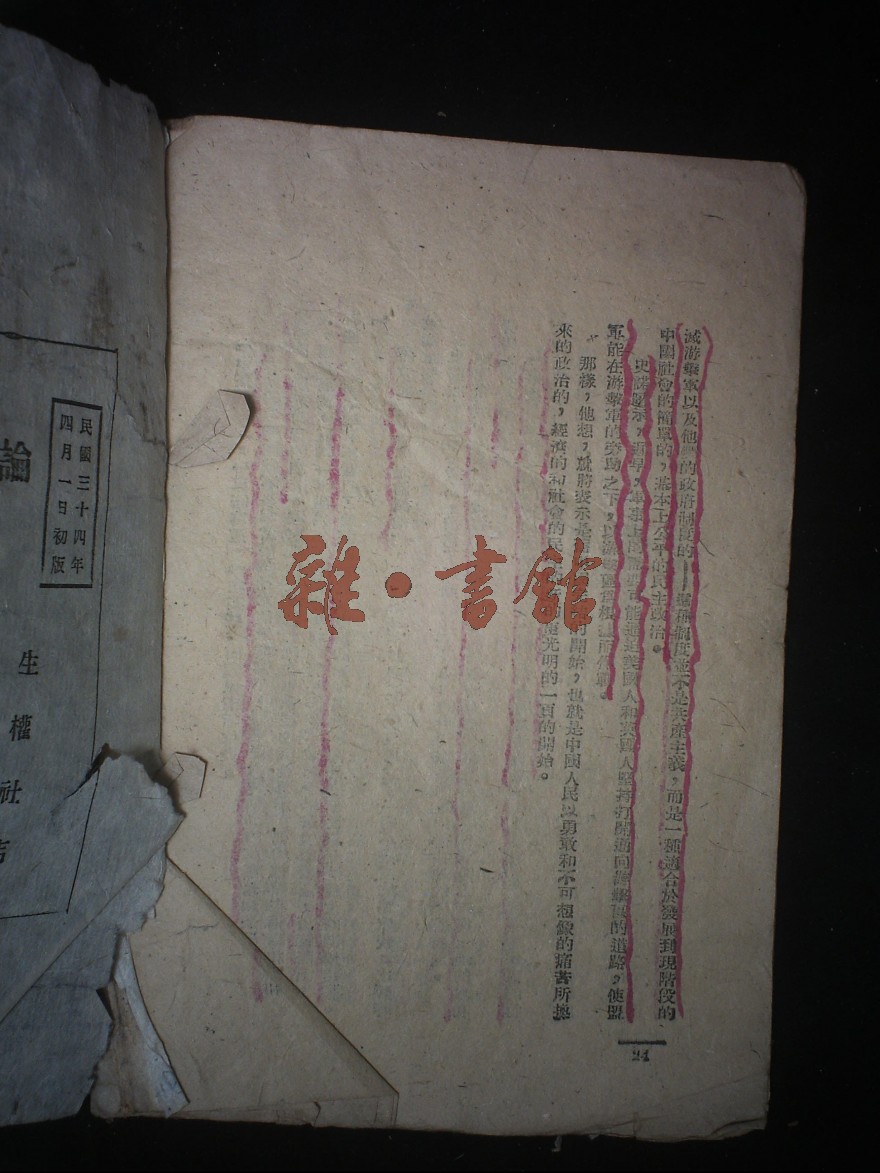 滅游擊軍以及他們的政府制度的——這種制度並不是共產主義,而是一種適合於發展到現階段的
中國社會的簡單的,基本上公平的民主政治。
史諾暗示,
能還是美國人和英國人堅持打開通向游擊區的道路,使盟
軍能在游擊軍的旁助之下,以游擊區爲根據而作戰。
那樣,他想,就將表示是
的開始,也就是中國人民以勇敢和不可想像的痛苦所換
來的政治的,經濟的和社會的民
光明的一頁的開始。
24
雜·書館
民國三十四年
四月一日初版
論
生
權
社
店